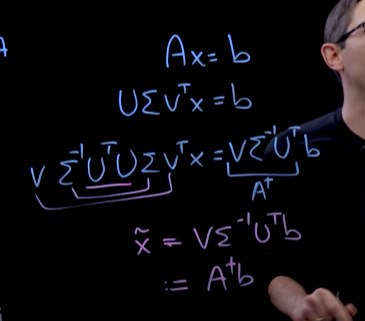 A
Ax = b
UΣVᵀx = b
V Σ⁻¹UᵀUΣVᵀx = VΣ⁻¹Uᵀb
A†
x̃ = VΣ⁻¹Uᵀb
:= A†b